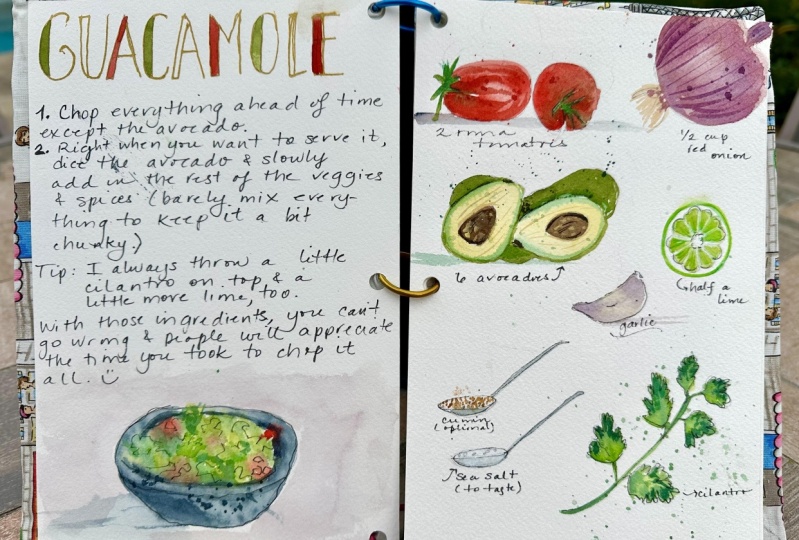 GUACAMOLE
1. Chop everything ahead of time
except the avocado.
2. Right when you want to serve it,
dice the avocado & slowly
add in the rest of the veggies
& spices (barely mix every-
thing to keep it a bit
chunky.)
Tip: I always throw a little
cilantro on top & a
little more lime, too.
With those ingredients, you can't
go wrong & people will appreciate
the time you took to chop it
all. ☺
2 roma
tomatoes
1/2 cup
red onion
6 avocadoes↑
half a
lime
garlic
cumin
(optional)
↑sea salt
(to taste)
cilantro